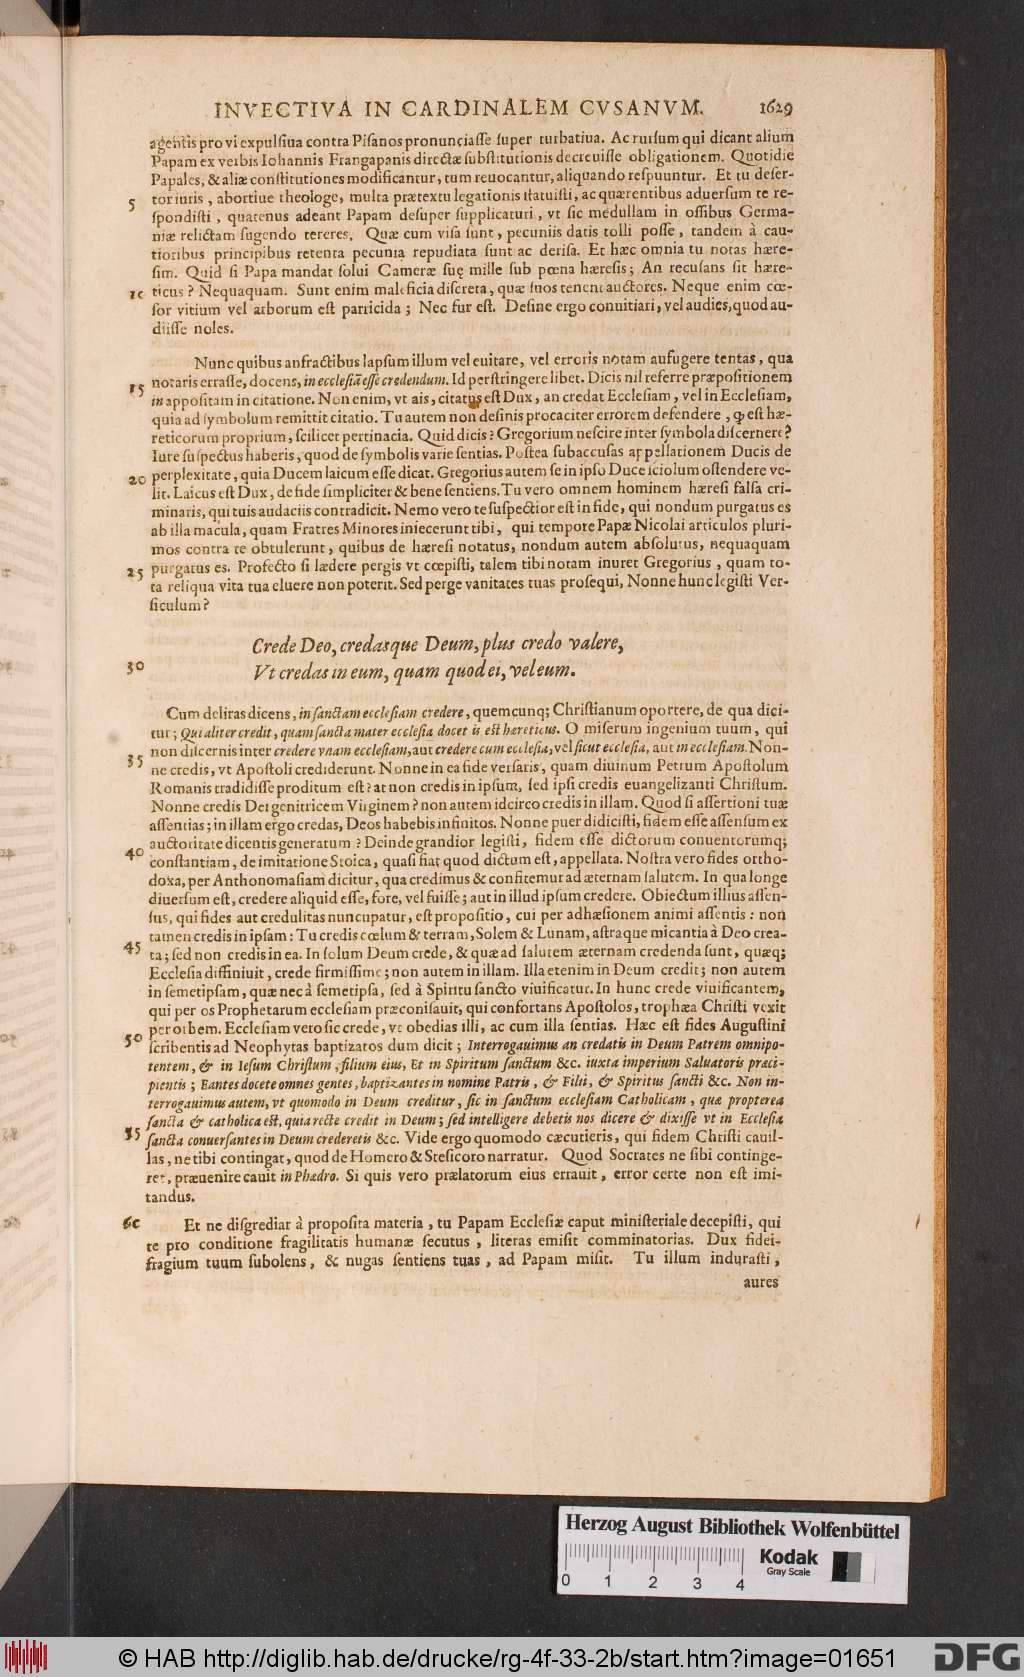 INVECTIVA IN CARDINALEM CVSANVM. 1629
agentis pro vi expulsiua contra Pisanos pronunciasse super turbatiua. Ac rursum qui dicant alium
Papam ex verbis Iohannis Frangapanis directæ substitutionis decreuisse obligationem. Quotidie
Papales, & aliæ constitutiones modificantur, tum reuocantur, aliquando respuuntur. Et tu deser-
5 tor iuris, abortiue theologe, multa prætextu legationis statuisti, ac quærentibus aduersum te re-
spondisti, quatenus adeant Papam desuper supplicaturi, vt sic medullam in ossibus Germa-
niæ relictam sugendo tereres. Quæ cum visa sunt, pecuniis datis tolli posse, tandem à cau-
tioribus principibus retenta pecunia repudiata sunt ac derisa. Et hæc omnia tu notas hære-
sim. Quid si Papa mandat solui Cameræ suę mille sub pœna hæresis; An recusans sit hære-
10 ticus? Nequaquam. Sunt enim maleficia discreta, quæ suos tenent auctores. Neque enim cæ-
sor vitium vel arborum est parricida; Nec fur est. Desine ergo conuitiari, vel audies, quod au-
diisse noles.
Nunc quibus anfractibus lapsum illum vel euitare, vel erroris notam aufugere tentas, qua
15 notaris errasse, docens, in ecclesiā esse credendum. Id perstringere libet. Dicis nil referre præpositionem
in appositam in citatione. Non enim, vt ais, citatus est Dux, an credat Ecclesiam, vel in Ecclesiam,
quia ad symbolum remittit citatio. Tu autem non desinis procaciter errorem defendere, ꝙ est hæ-
reticorum proprium, scilicet pertinacia. Quid dicis? Gregorium nescire inter symbola discernere?
Iure suspectus haberis, quod de symbolis varie sentias. Postea subaccusas appellationem Ducis de
20 perplexitate, quia Ducem laicum esse dicat. Gregorius autem se in ipso Duce sciolum ostendere ve-
lit. Laicus est Dux, de fide simpliciter & bene sentiens. Tu vero omnem hominem hæresi falsa cri-
minaris, qui tuis audaciis contradicit. Nemo vero te suspectior est in fide, qui nondum purgatus es
ab illa macula, quam Fratres Minores iniecerunt tibi, qui tempore Papæ Nicolai articulos pluri-
mos contra te obtulerunt, quibus de hæresi notatus, nondum autem absolutus, nequaquam
25 purgatus es. Profecto si lædere pergis vt cœpisti, talem tibi notam inuret Gregorius, quam to-
ta reliqua vita tua eluere non poterit. Sed perge vanitates tuas prosequi, Nonne hunc legisti Ver-
siculum?
Crede Deo, credasque Deum, plus credo valere,
30 Vt credas in eum, quam quod ei, vel eum.
Cum deliras dicens, in sanctam ecclesiam credere, quemcunq; Christianum oportere, de qua dici-
tur; Qui aliter credit, quam sancta mater ecclesia docet is est hæreticus. O miserum ingenium tuum, qui
non discernis inter credere vnam ecclesiam, aut credere cum ecclesia, vel sicut ecclesia, aut in ecclesiam. Non-
35 ne credis, vt Apostoli crediderunt. Nonne in ea fide versaris, quam diuinum Petrum Apostolum
Romanis tradidisse proditum est? at non credis in ipsum, sed ipsi credis euangelizanti Christum.
Nonne credis Dei genitricem Virginem? non autem idcirco credis in illam. Quod si assertioni tuæ
assentias; in illam ergo credas, Deos habebis infinitos. Nonne puer didicisti, fidem esse assensum ex
auctoritate dicentis generatum? Deinde grandior legisti, fidem esse dictorum conuentorumq;
40 constantiam, de imitatione Stoica, quasi fiat quod dictum est, appellata. Nostra vero fides ortho-
doxa, per Anthonomasiam dicitur, qua credimus & confitemur ad æternam salutem. In qua longe
diuersum est, credere aliquid esse, fore, vel fuisse; aut in illud ipsum credere. Obiectum illius assen-
sus, qui fides aut credulitas nuncupatur, est propositio, cui per adhæsionem animi assentis: non
tamen credis in ipsam: Tu credis cœlum & terram, Solem & Lunam, astraque micantia à Deo crea-
45 ta; sed non credis in ea. In solum Deum crede, & quæ ad salutem æternam credenda sunt, quæq;
Ecclesia diffiniuit, crede firmissime; non autem in illam. Illa etenim in Deum credit; non autem
in semetipsam, quæ nec à semetipsa, sed à Spiritu sancto viuificatur. In hunc crede viuificantem,
qui per os Prophetarum ecclesiam præconisauit, qui confortans Apostolos, trophæa Christi vexit
per orbem. Ecclesiam vero sic crede, vt obedias illi, ac cum illa sentias. Hæc est fides Augustini
50 scribentis ad Neophytas baptizatos dum dicit; Interrogauimus an credatis in Deum Patrem omnipo-
tentem, & in Iesum Christum, filium eius, Et in Spiritum sanctum &c. iuxta imperium Saluatoris præci-
pientis; Eantes docete omnes gentes, baptizantes in nomine Patris, & Filii, & Spiritus sancti &c. Non in-
terrogauimus autem, vt quomodo in Deum creditur, sic in sanctum ecclesiam Catholicam, quæ propterea
sancta & catholica est, quia recte credit in Deum; sed intelligere debetis nos dicere & dixisse vt in Ecclesia
55 sancta conuersantes in Deum crederetis &c. Vide ergo quomodo cæcutieris, qui fidem Christi cauil-
las, ne tibi contingat, quod de Homero & Stesicoro narratur. Quod Socrates ne sibi continge-
ret, præuenire cauit in Phædro. Si quis vero prælatorum eius errauit, error certe non est imi-
tandus.
60 Et ne disgrediar à proposita materia, tu Papam Ecclesiæ caput ministeriale decepisti, qui
te pro conditione fragilitatis humanæ secutus, literas emisit comminatorias. Dux fidei-
fragium tuum subolens, & nugas sentiens tuas, ad Papam misit. Tu illum indurasti,
aures
Herzog August Bibliothek Wolfenbüttel
0 1 2 3 4
Kodak
Gray Scale
© HAB http://diglib.hab.de/drucke/rg-4f-33-2b/start.htm?image=01651
DFG